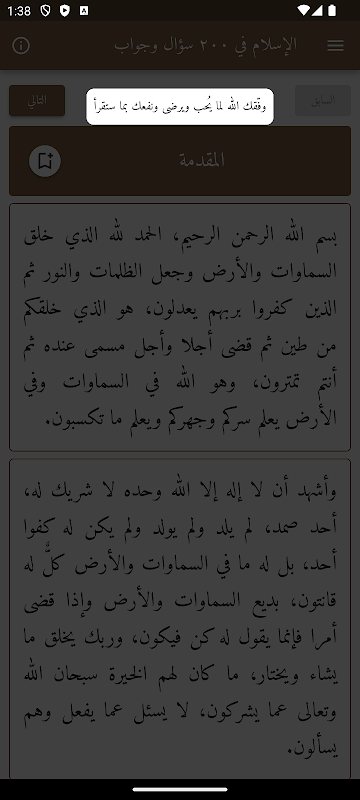 1:38
الإسلام في ٢٠٠ سؤال وجواب
السابق
وفّقك الله لما يُحب ويرضى ونفعك بما ستقرأ
التالي
المقدمة
بسم الله الرحمن الرحيم، الحمد لله الذي خلق
السماوات والأرض وجعل الظلمات والنور ثم
الذين كفروا بربهم يعدلون، هو الذي خلقكم
من طين ثم قضى أجلا وأجل مسمى عنده ثم
أنتم تمترون، وهو الله في السماوات وفي
الأرض يعلم سركم وجهركم ويعلم ما تكسبون.
وأشهد أن لا إله إلا الله وحده لا شريك له،
أحد صمد، لم يلد ولم يولد ولم يكن له كفوا
أحد، بل له ما في السماوات والأرض كلٌّ له
قانتون، بديع السماوات والأرض وإذا قضى
أمرا فإنما يقول له كن فيكون، وربك يخلق ما
يشاء ويختار، ما كان لهم الخيرة سبحان الله
وتعالى عما يشركون، لا يسئل عما يفعل وهم
يسألون.